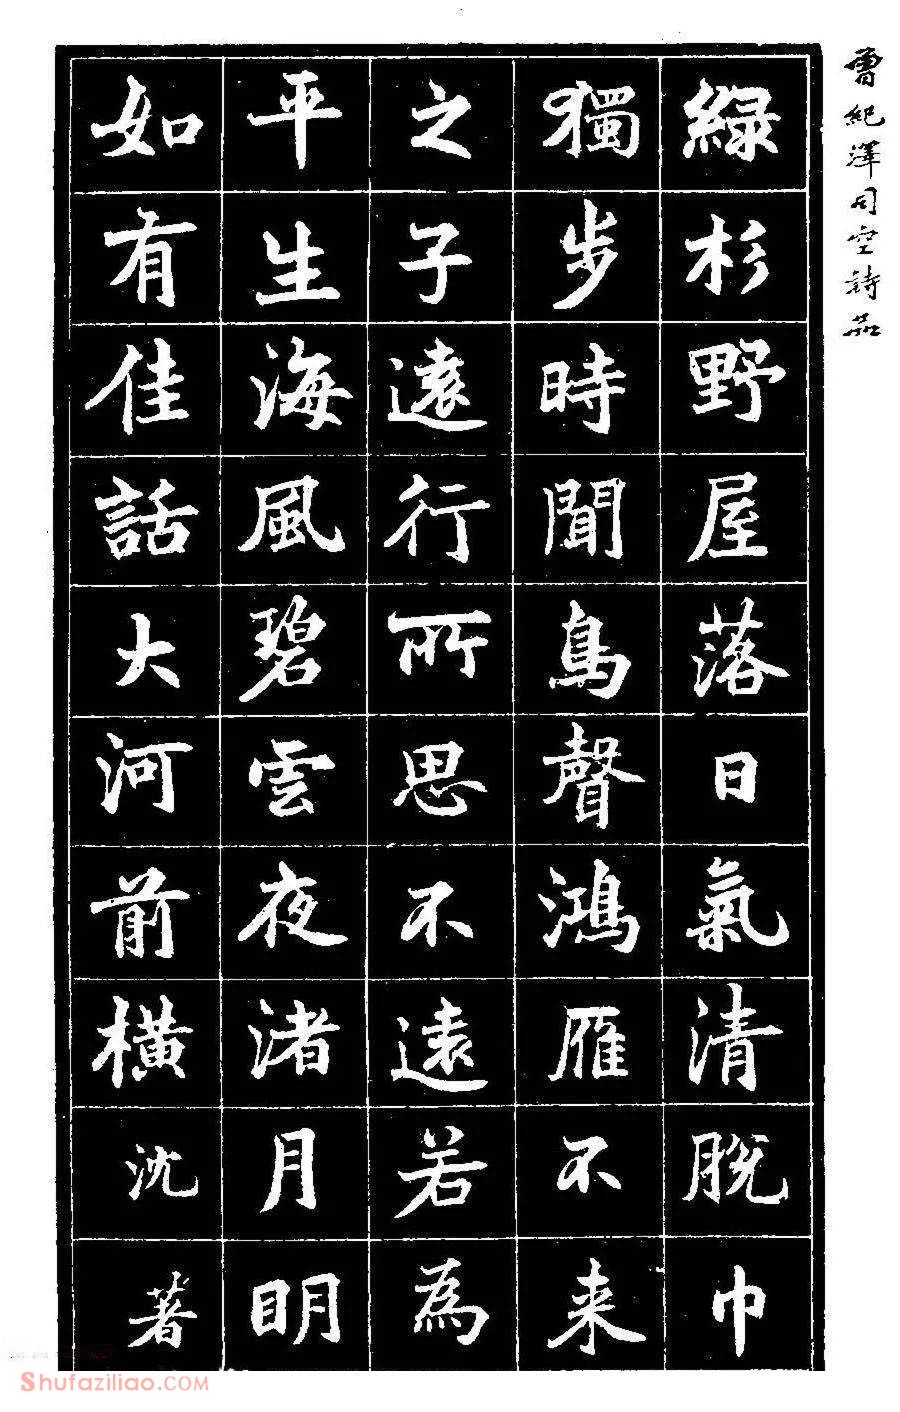 曾紀澤司空詩品
綠杉野屋落日氣清脫巾
獨步時聞鳥聲鴻雁不来
之子遠行所思不遠若為
平生海風碧雲夜渚月明
如有佳話大河前橫沈著
Shufaziliao.COM